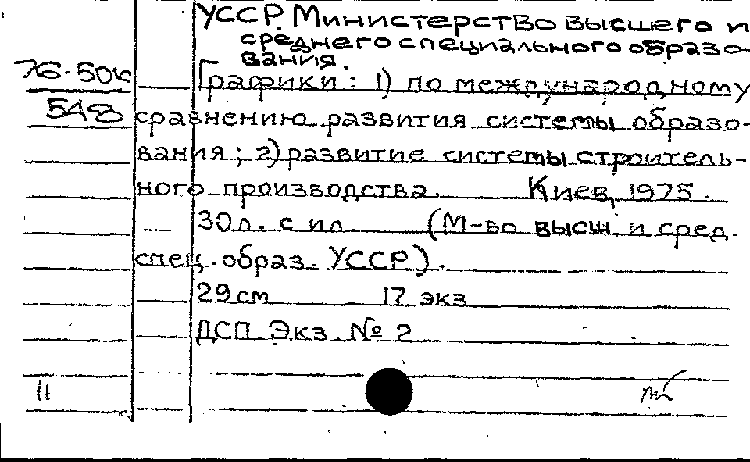 УССР Министерство высшего и
среднего специального образо-
вания.
76-50к
548
Графики: 1) по международному
сравнению развития системы образо-
вания; 2) развитие системы строитель-
ного производства. Киев, 1975.
30л. с ил. (М-во высш. и сред.
спец. образ. УССР).
29см 17 экз
ДСП Экз. № 2
11